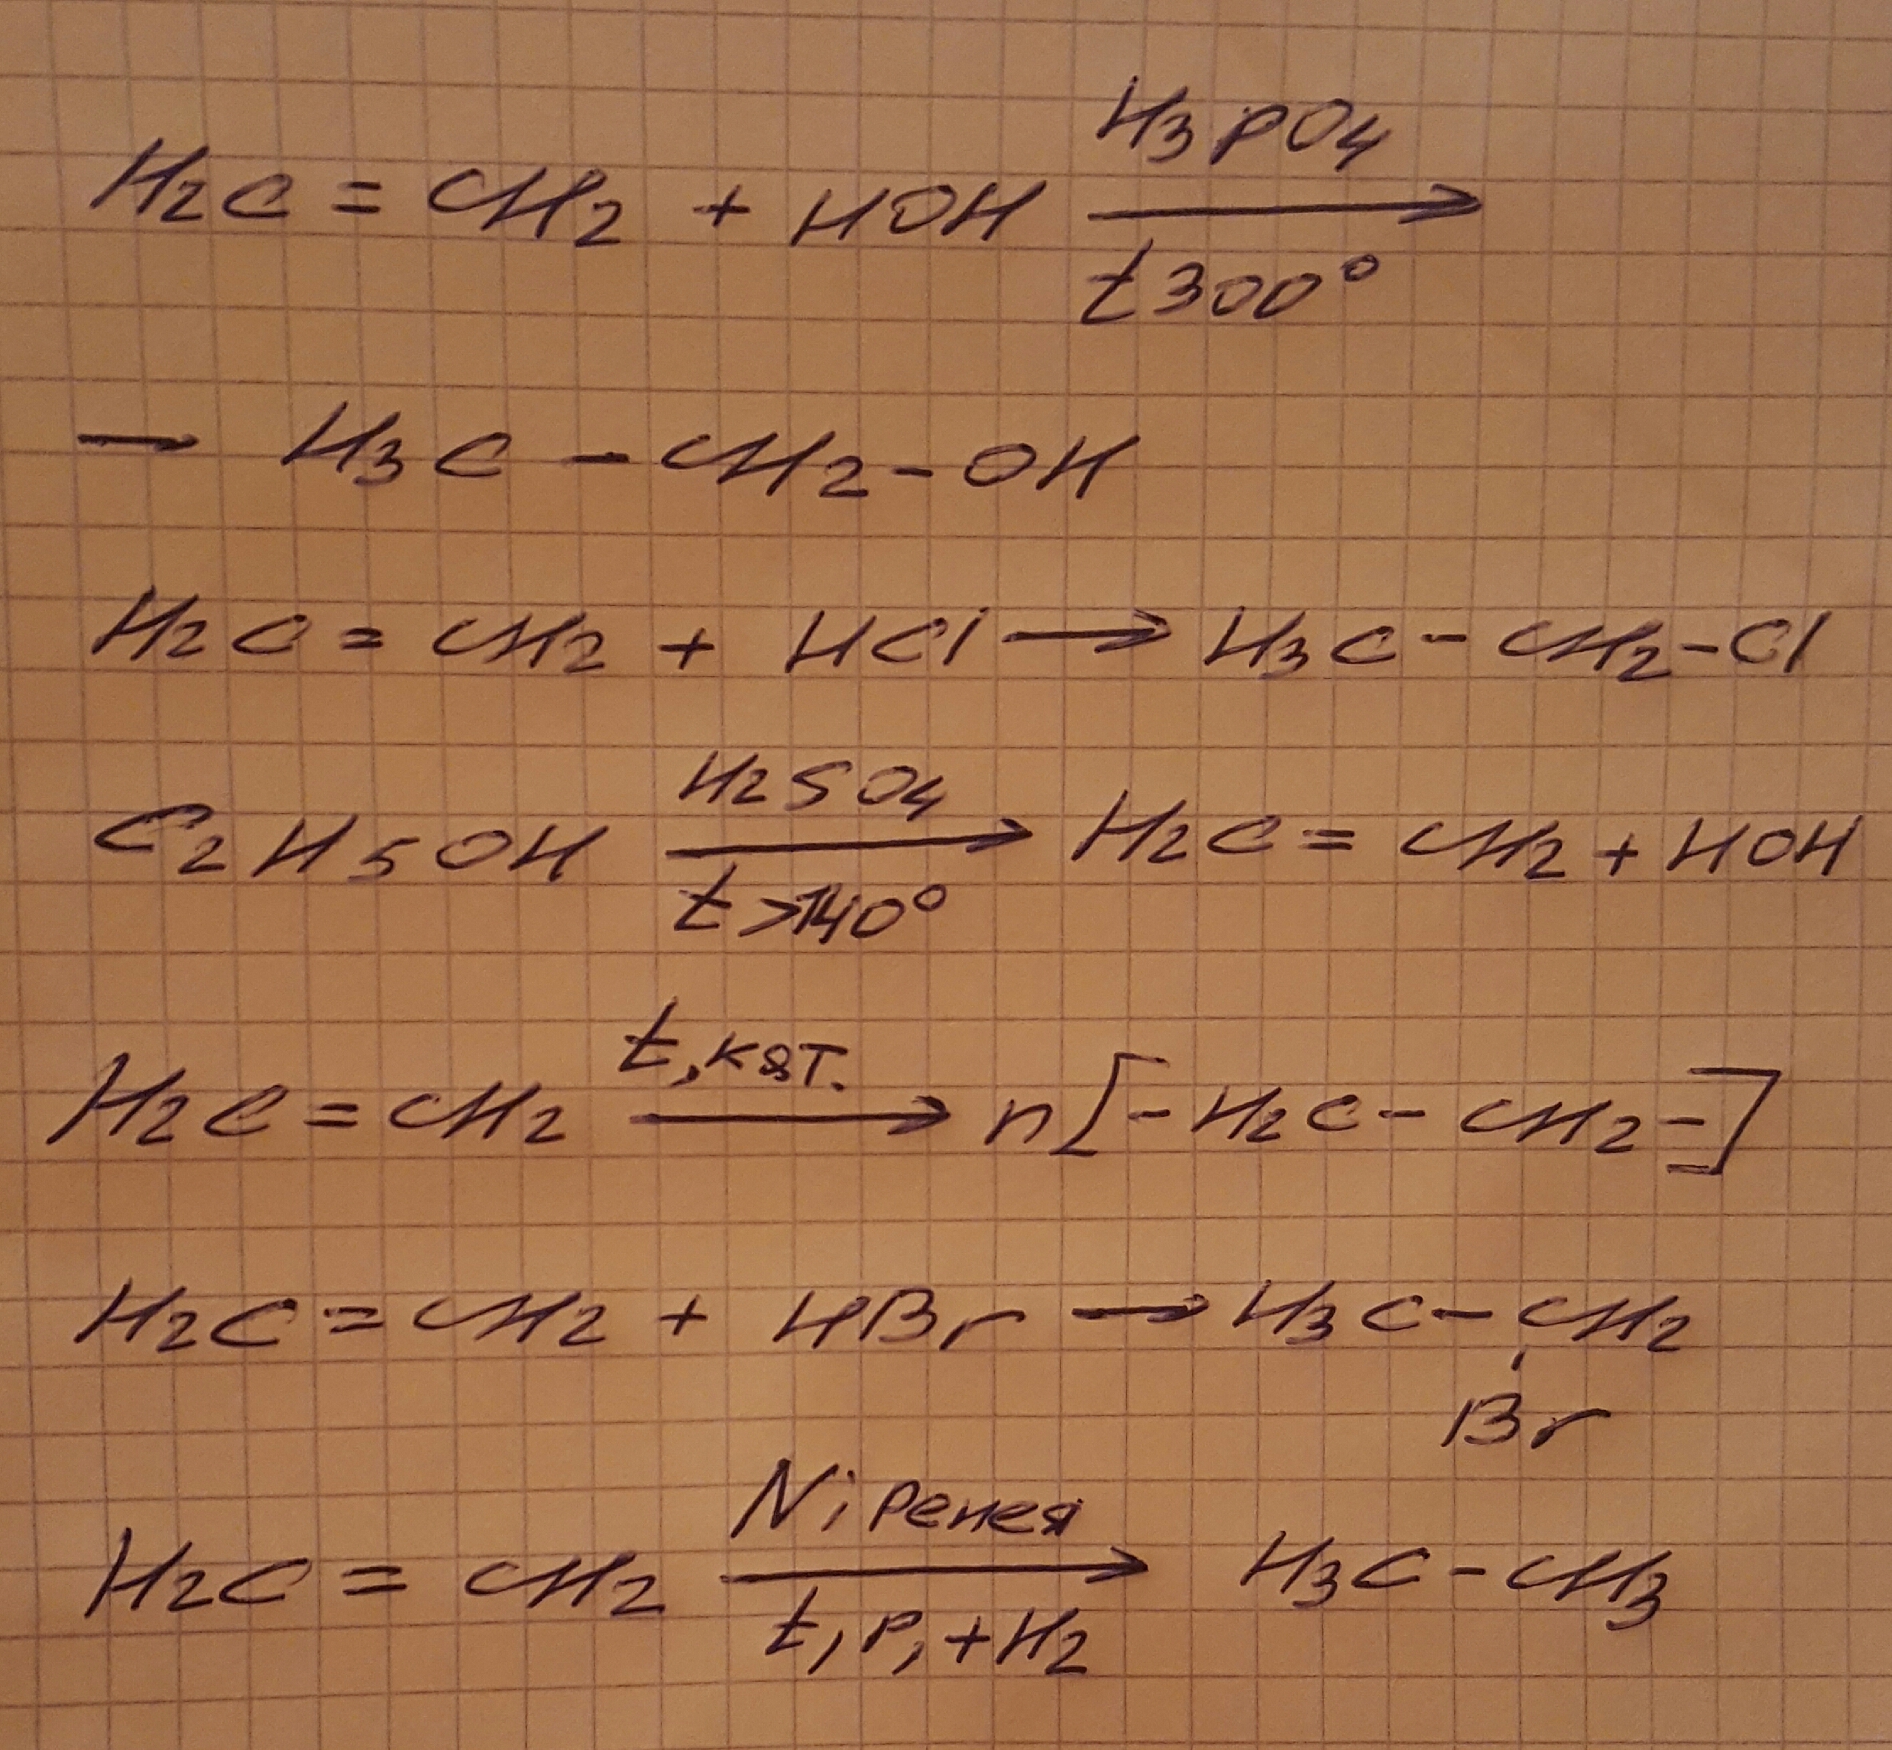 H2C = CH2 + HOH H3PO4 ⟶ t 300°
→ H3C - CH2 - OH
H2C = CH2 + HCl ⟶ H3C - CH2 - Cl
C2H5OH H2SO4 ⟶ t >140° H2C = CH2 + HOH
H2C = CH2 t, кат. ⟶ n[- H2C - CH2 -]
H2C = CH2 + HBr ⟶ H3C - CH2
Br
H2C = CH2 Ni Ренея ⟶ t, p, +H2 H3C - CH3